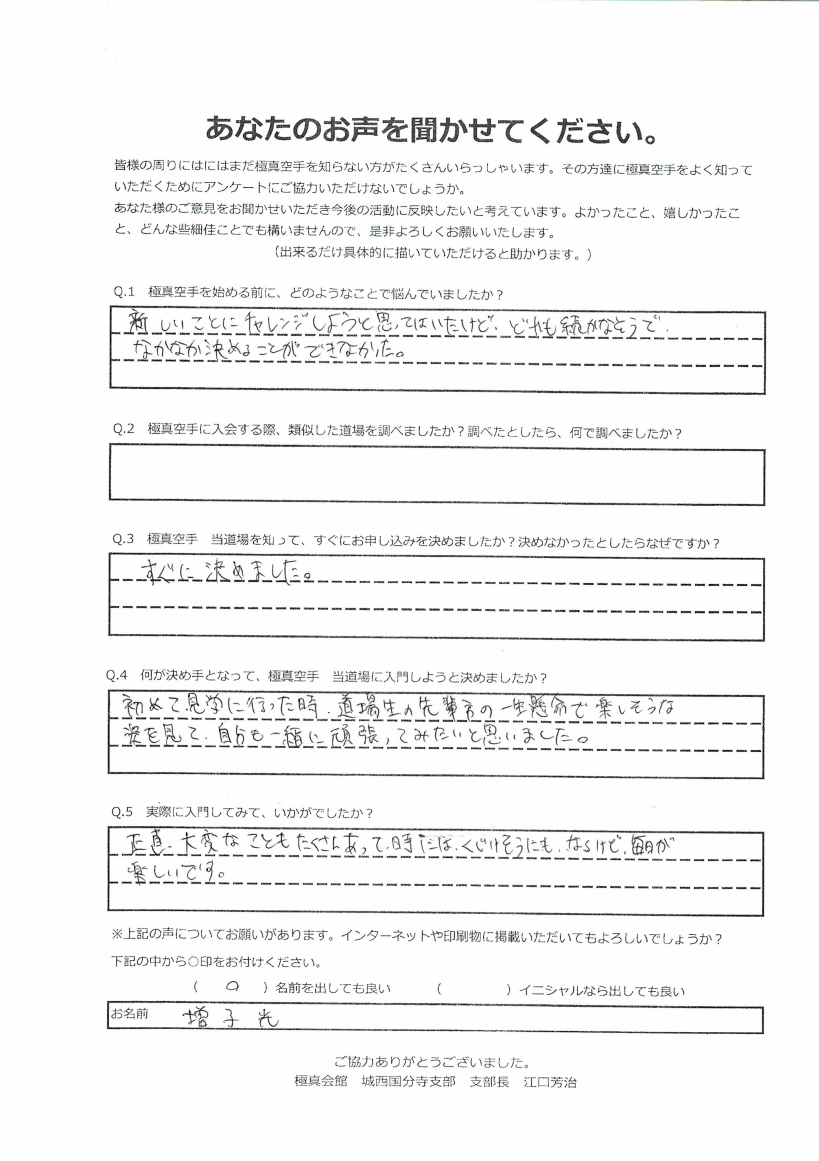 あなたのお声を聞かせてください。
皆様の周りにはにはまだ極真空手を知らない方がたくさんいらっしゃいます。その方達に極真空手をよく知って
いただくためにアンケートにご協力いただけないでしょうか。
あなた様のご意見をお聞かせいただき今後の活動に反映したいと考えています。よかったこと、嬉しかったこ
と、どんな些細佳ことでも構いませんので、是非よろしくお願いいたします。
（出来るだけ具体的に描いていただけると助かります。）
Q.1 極真空手を始める前に、どのようなことで悩んでいましたか？
新しいことにチャレンジしようと思ってはいたけど、どれも続かなそうで、
なかなか決めることができなかった。
Q.2 極真空手に入会する際、類似した道場を調べましたか？調べたとしたら、何で調べましたか？
Q.3 極真空手 当道場を知って、すぐにお申し込みを決めましたか？決めなかったとしたらなぜですか？
すぐに決めました。
Q.4 何が決め手となって、極真空手 当道場に入門しようと決めましたか？
初めて見学に行った時、道場生の先輩方の一生懸命で楽しそうな
姿を見て、自分も一緒に頑張ってみたいと思いました。
Q.5 実際に入門してみて、いかがでしたか？
正直、大変なこともたくさんあって、時には、くじけそうにも、なるけど、毎日が
楽しいです。
※上記の声についてお願いがあります。インターネットや印刷物に掲載いただいてもよろしいでしょうか？
下記の中から○印をお付けください。
（ ○ ）名前を出しても良い （ ）イニシャルなら出しても良い
お名前 増子光
ご協力ありがとうございました。
極真会館 城西国分寺支部 支部長 江口芳治